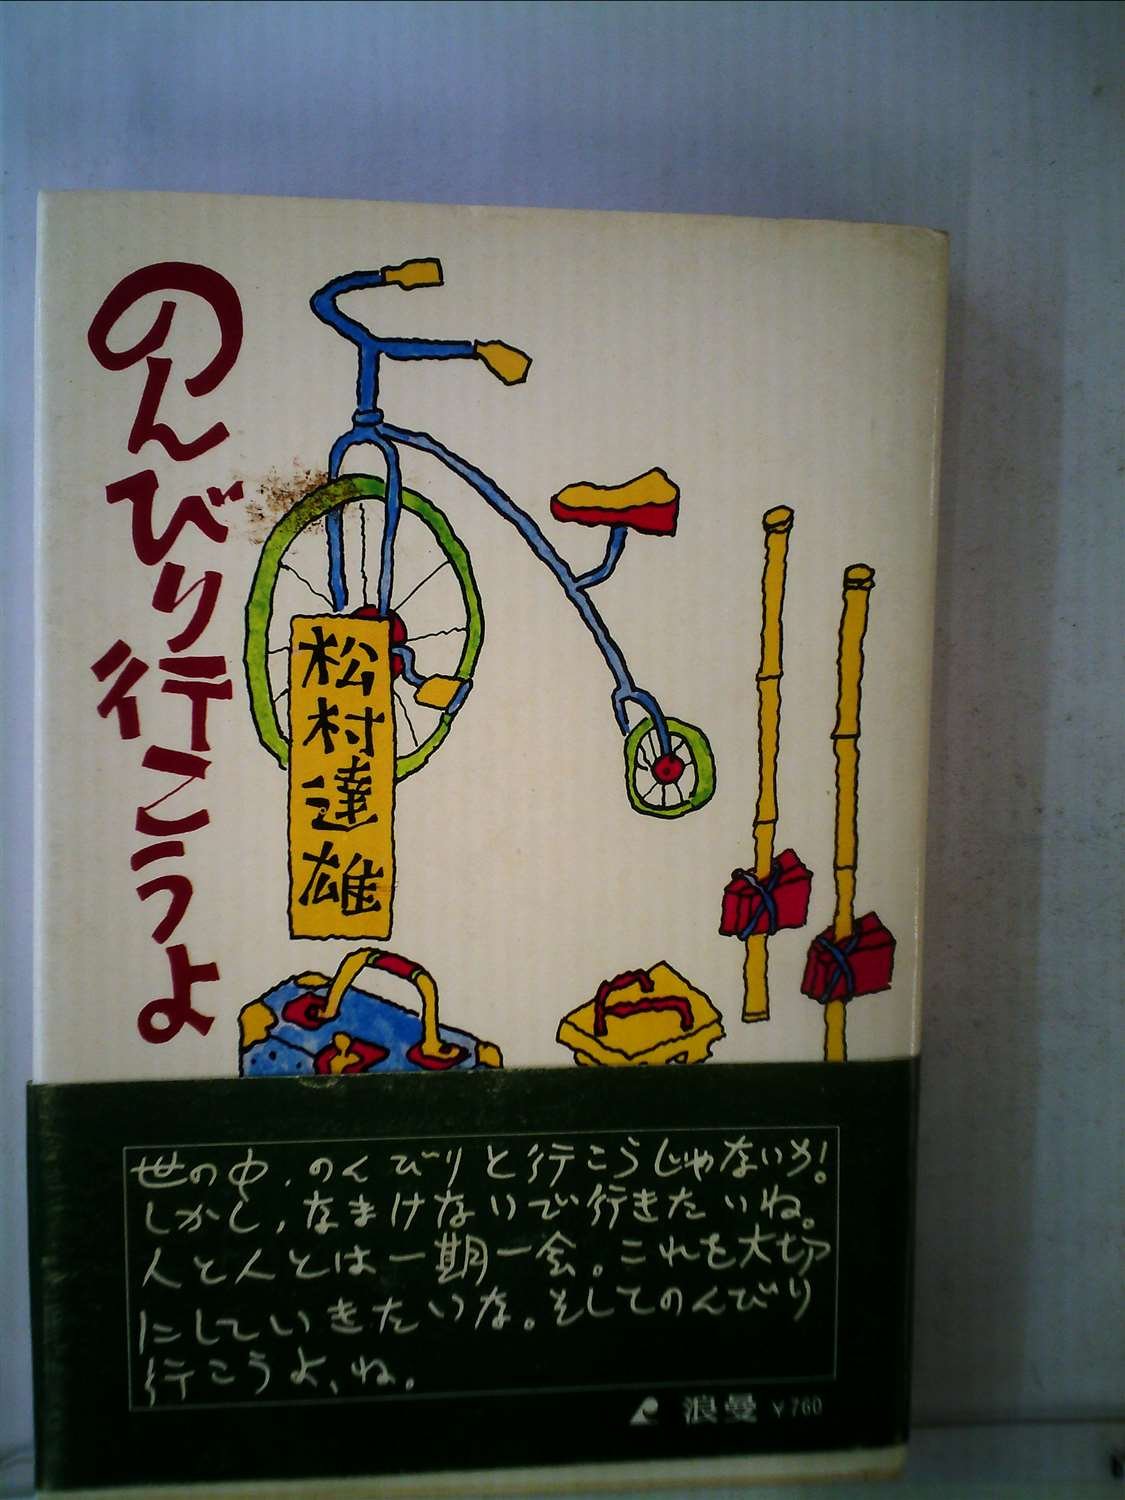 のんびり行こうよ
松村達雄
世の中、のんびりと行こうじゃないか！
しかし、なまけないで行きたいね。
人と人とは一期一会。これを大切
にしていきたいな。そしてのんびり
行こうよ、ね。
浪曼 ￥760